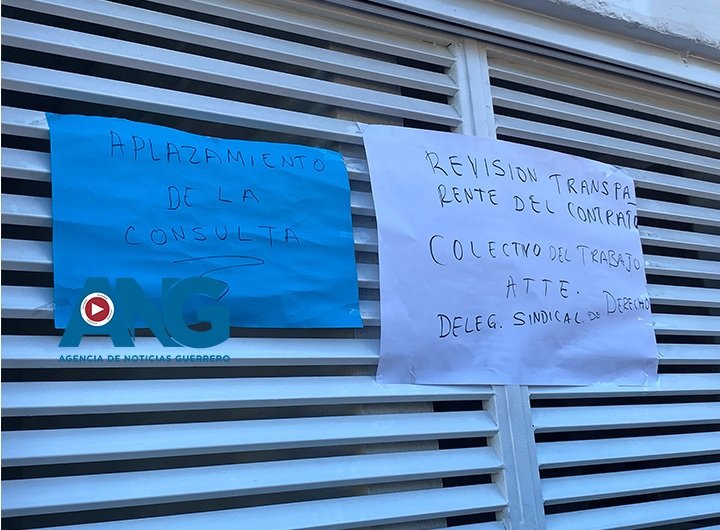 APLAZAMIENTO
DE LA
CONSULTA
REVISION TRANSPA
RENTE DEL CONTRATO
COLECTIVO DEL TRABAJO
ATTE.
DELEG. SINDICAL DE DERECHO
ANG
AGENCIA DE NOTICIAS GUERRERO